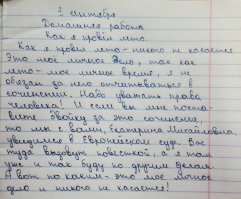 3 сентября
Домашняя работа
Как я провёл лето.
Как я провёл лето - никого не касается.
Это моё личное дело, так как
лето - моё личное время, я не
обязан за него отчитываться в
сочинении. Надо уважать права
человека! И если вы мне поста
вите двойку за это сочинение,
то мы с вами, Екатерина Михайловна,
увидимся в Европейском суде. Вас
туда вызовут повесткой, а я там
уже и так буду по другим делам.
А вот по каким - это моё личное
дело и никого не касается!